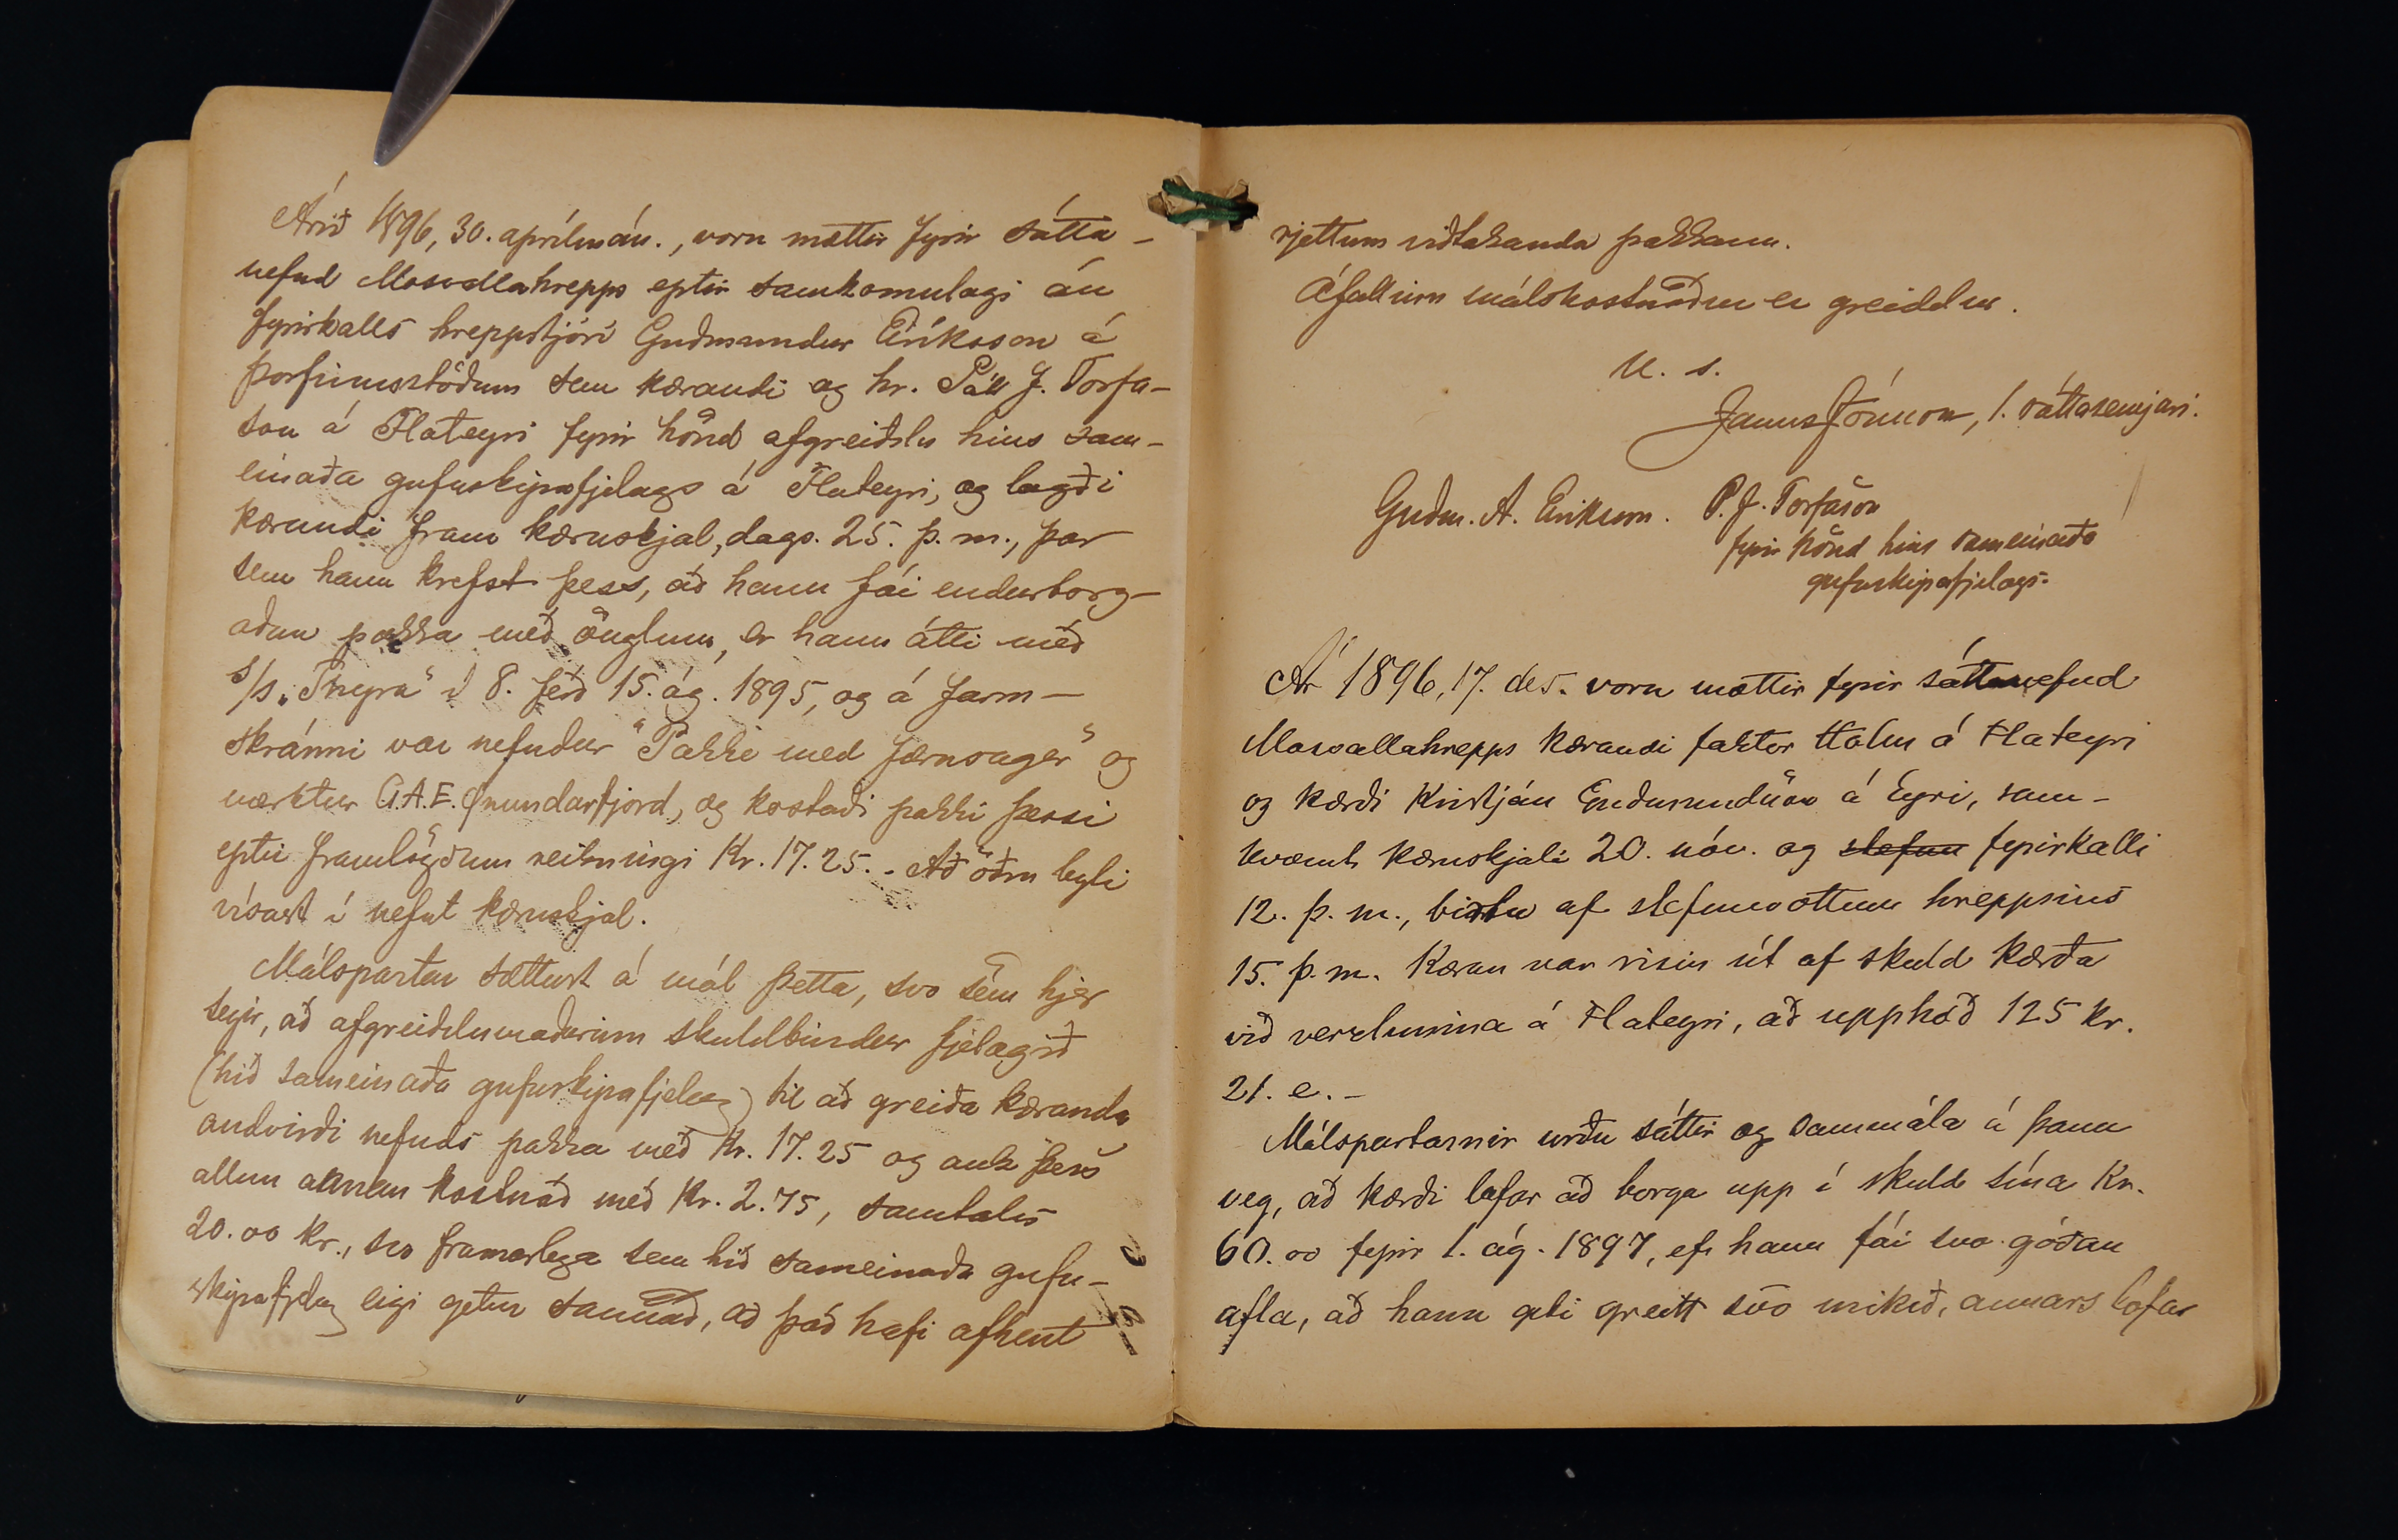 Árið 1896, 30. aprílmán., voru mættir fyrir sátta-
nefnd Mosvallahrepps eptir samkomulagi án
fyrirkalls hreppstjóri Guðmundur Eiríksson á
Þorfinnsstöðum sem kærandi og hr. Páll J. Torfa-
son á Flateyri fyrir hönd afgreiðslu hins sam-
einaða gufuskipafjelags á Flateyri, og lagði
kærandi fram kæruskjal, dags. 25. þ. m., þar
sem hann krefst þess, að hann fái endurborg-
aðan pakka með önglum, er hann átti með
s/s. „Thyra“ í 8. ferð 15. ág. 1895, og á farm-
skránni var nefndur "Pakke med Jærnanger" og
merktur G.A.E. Ønundarfjord, og kostaði pakki þessi
eptir framlögðum reikningi Kr. 17.25. - Að öðru leyti
vísast í nefnt kæruskjal.
Málspartar sættust á mál þetta, svo sem hjer
segir, að afgreiðslumaðurinn skuldbindur fjelagið
(hið sameinaða gufuskipafjelag) til að greiða kæranda
andvirði nefnds pakka með Kr. 17.25 og auk þess
allan annan kostnað með Kr. 2.75, samtals
20.00 kr., svo framarlega sem hið sameinaða gufu-
skipafjelag eigi getur sannað, að það hafi afhent
rjettum viðtakanda pakkann.
Áfallinn málskostnaður er greiddur.
U. s.
Janus Jónsson, 1. sáttasemjari.
Guðm. A. Eiríksson. P. J. Torfason
fyrir hönd hins sameinaða
gufuskipafjelags.
Ár 1896, 17. des. voru mættir fyrir sáttanefnd
Mosvallahrepps kærandi faktor Holm á Flateyri
og kærði Kristján Guðmundsson á Eyri, sam-
kvæmt kæruskjali 20. nóv. og stefnu fyrirkalli
12. þ. m., birtu af stefnuvottum hreppsins
15. þ. m. Kæran var risin út af skuld kærða
við verzlunina á Flateyri, að upphæð 125 kr.
21. e. -
Málspartarnir urðu sáttir og sammála á þann
veg, að kærði lofar að borga upp í skuld sína Kr.
60.00 fyrir 1. ág. 1897, ef hann fái svo góðan
afla, að hann geti greitt svo mikið, annars lofar